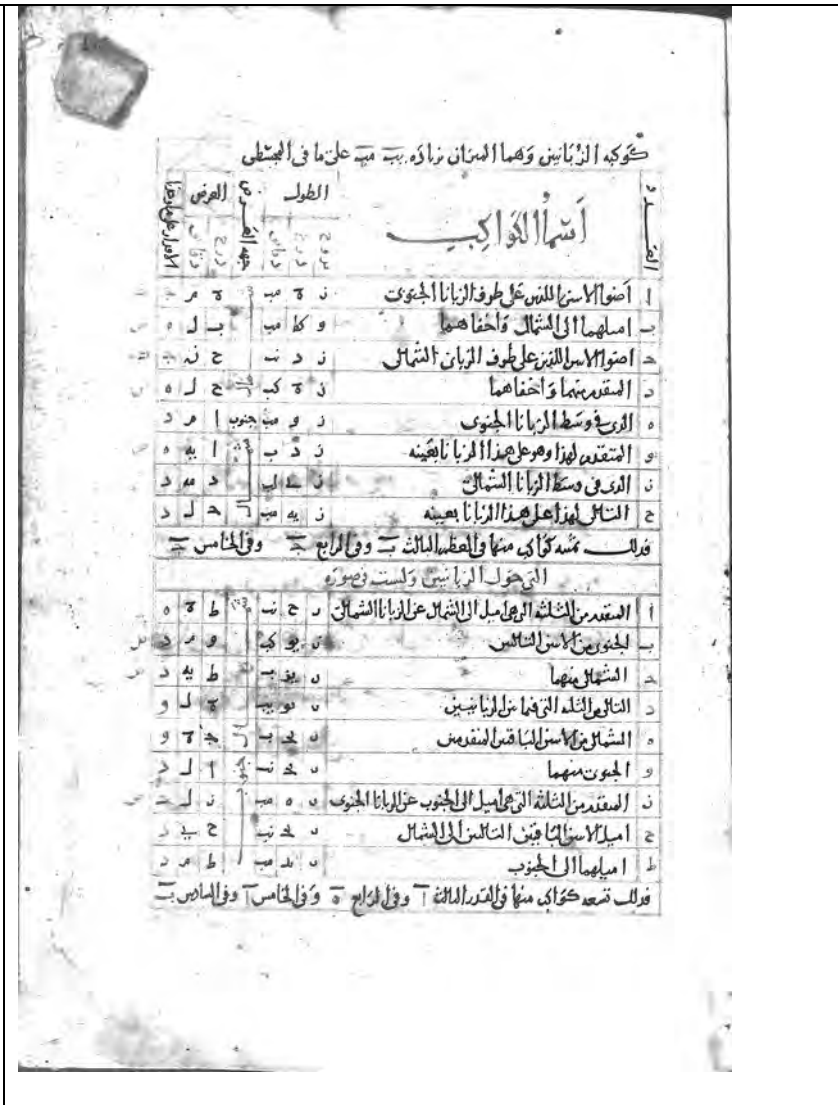 كوكبه الزبانين وهما الميزان بزياده يب مب على ما فى المجسطى
العدد اسماء الكواكب الطول جهة العرض العرض
بروج درج دقائق درج دقائق
ا اضوا الاسن اللذين على طرف الزبانا الجنوبى ز ة مب ة م
ب اميلهما الى الشمال واخفاهما و كط مب ب ل ه
ج اضوا الاسن اللذين على طرف الزبانى الشمالى ز د نب ح ن ب
د المتقدم منهما واخفاهما ز ة كب ح ل ه
ه الذى فى وسط الزبانا الجنوبى ز و مب جنوب ا م د
و المتقدم لهذا وهو على هذا الزبانا بعينه ز د ب ا يه ه
ز الذى فى وسط الزبانا الشمالى ز د مه د
ح التالى لهذا على هذا الزبانا بعينه ز يه مب ل د
فذلك كواكب منها فى العظم الثالثه ب وفى الرابع وفى الخامس
التى حول الزبانين وليست فى صوره
ا المتقدم من الثلثه التى هى اميل الى الشمال عن الزبانا الشمالى ز ح نب ط ة ه
ب الجنوبى من الاسن التالين ز يو كب و م د
ج الشمالى منهما ز يز ب ط يه د
د التالى من الثلثه التى فيما بين الزبانين ز ة ل و
ه الشمالى من الاسن الباقيين المتقدمين ز يج ب ج ة و
و الجنوبى منهما ز يج نب ا ل د
ز المتقدم من الثلثه التى هى اميل الى الجنوب عن الزبانا الجنوبى ز ه مب ز ل
ح اميل الاسن الباقيين التالين الى الشمال ز يج نب ح ي د
ط اميلهما الى الجنوب ز يد مب ط م د
فذلك تسعه كواكب منها فى القدر الثالث ا وفى الرابع ه وفى الخامس ا وفى السادس ب